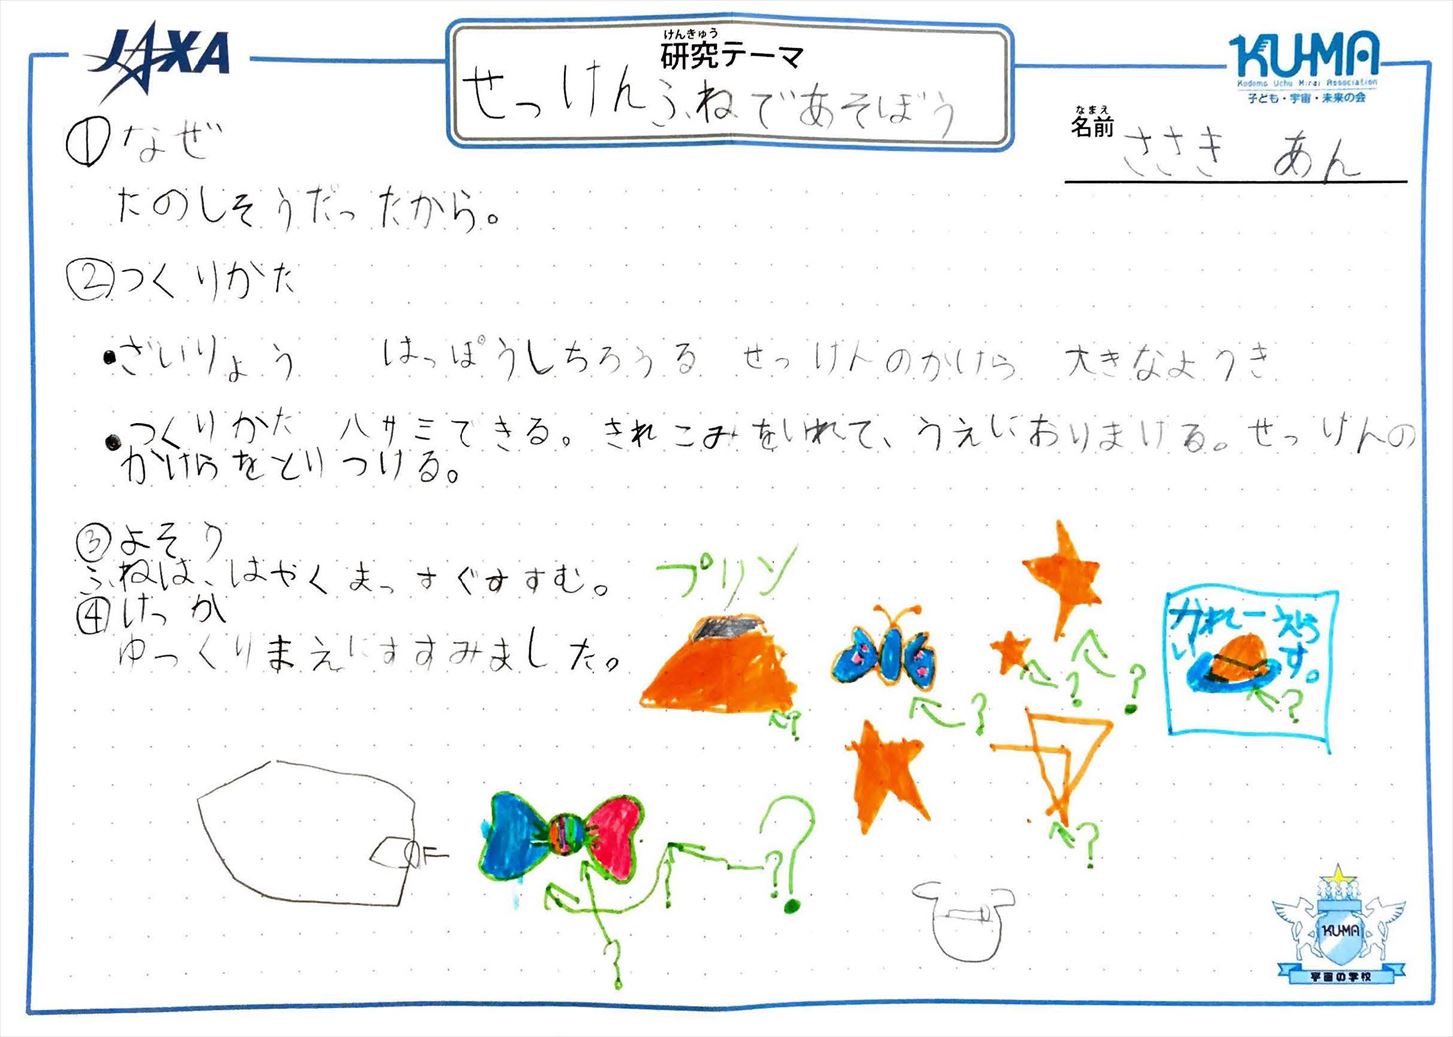 JAXA
けんきゅう
研究テーマ
せっけんふねであそぼう
KU-MA
Kodomo Uchu Mirai Association
子ども・宇宙・未来の会
なまえ
名前
ささき あん
①なぜ
たのしそうだったから。
②つくりかた
●ざいりょう はっぽうしちろうる せっけんのかけら 大きなようき
●つくりかた ハサミできる。きれこみをいれて、うえにおりまげる。せっけんの
かけらをとりつける。
③よそう
ふねは、はやくまっすぐすすむ。
④けっか
ゆっくりまえにすすみました。
プリン
?
?
?
?
?
?
?
?
?
KU-MA
宇宙の学校